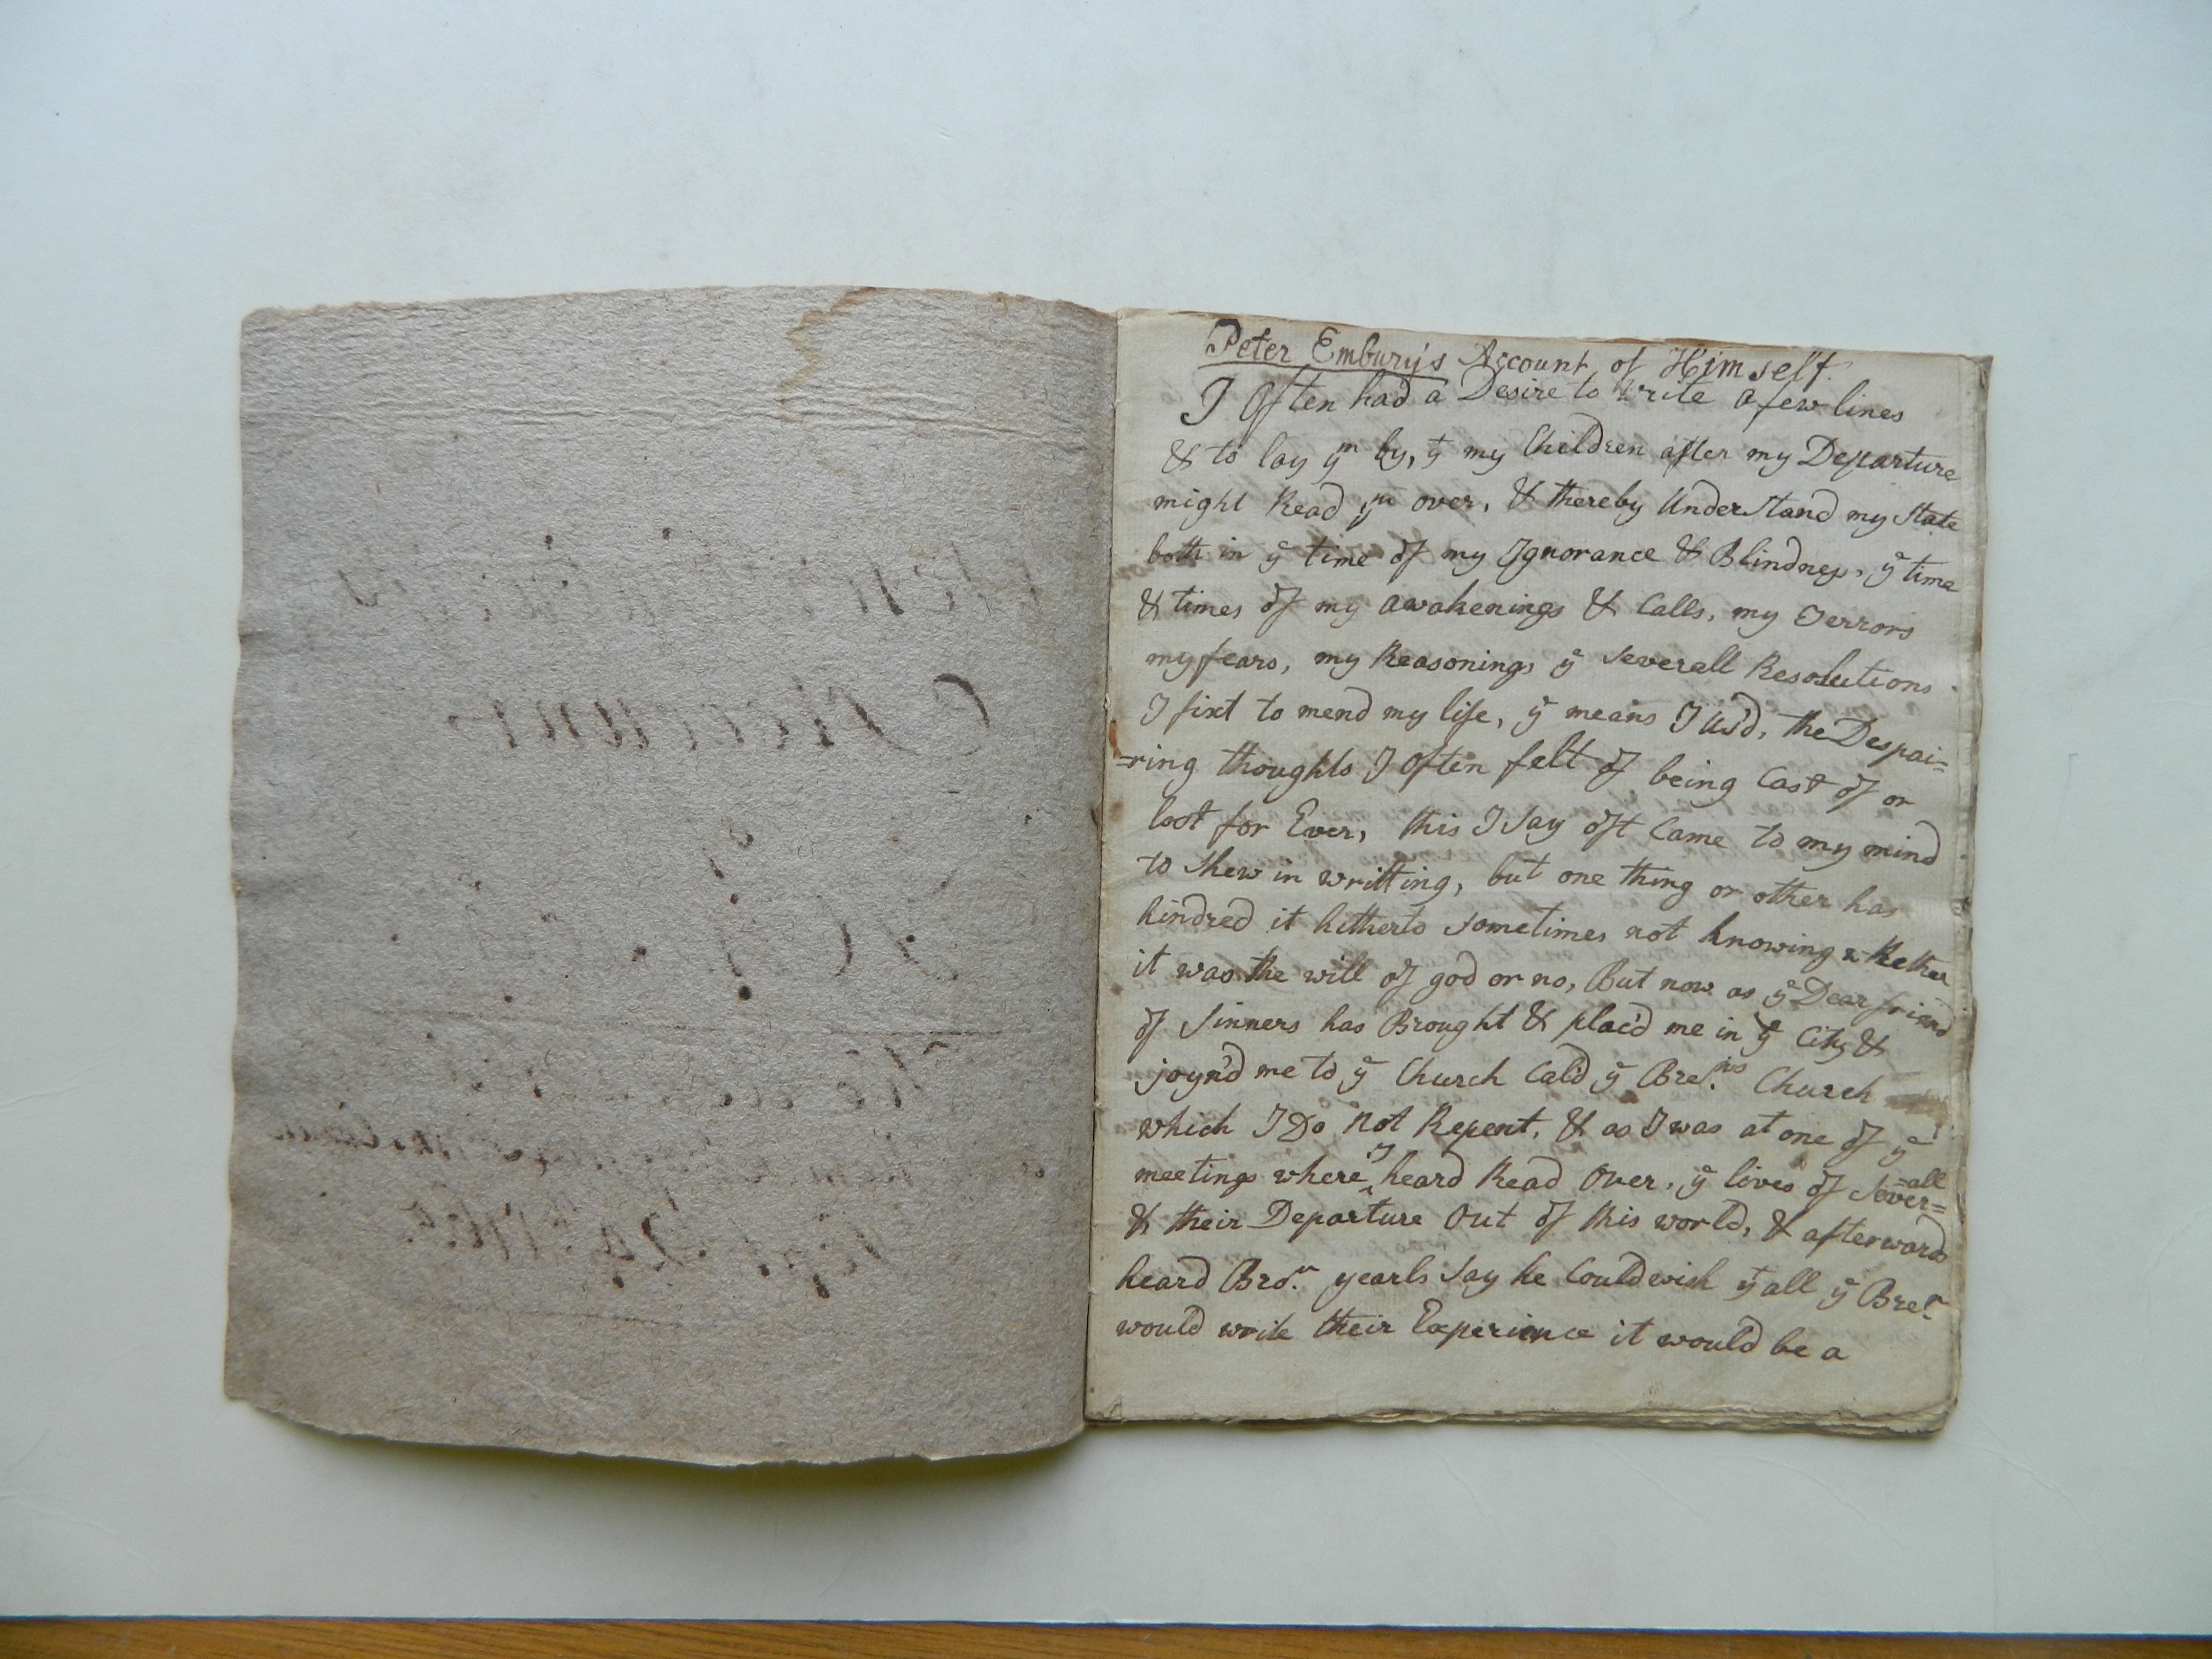 Peter Embury's Account of Himself.
I Often had a Desire to Write a few lines
& to lay yᵐ by, yᵗ my Children after my Departure
might Read yᵐ over, & thereby Understand my State
both in yᵉ time of my Ignorance & Blindness, yᵉ time
& times of my awakenings & Calls, my Terrors
my fears, my Reasonings yᵉ Severall Resolutions
I fixt to mend my life, yᵉ means I us'd, the Despai=
=ring thoughts I Often felt of being Cast of or
lost for Ever, this I Say oft Came to my mind
to Shew in writting, but one thing or other has
hindred it hitherto Sometimes not knowing whether
it was the will of god or no, But now as yᵉ Dear friend
of Sinners has Brought & plac'd me in yᵉ City &
joyn'd me to yᵉ Church Cal'd yᵉ Breⁿˢ Church
which I Do not Repent, & as I was at one of yᵉ
meetings where I heard Read Over, yᵉ lives of Sever=
=all
& their Departure Out of this world, & afterwards
heard Broʳ. yearls Say he Could wish yᵗ all yᵉ Breⁿ.
would write their Experience it would be a